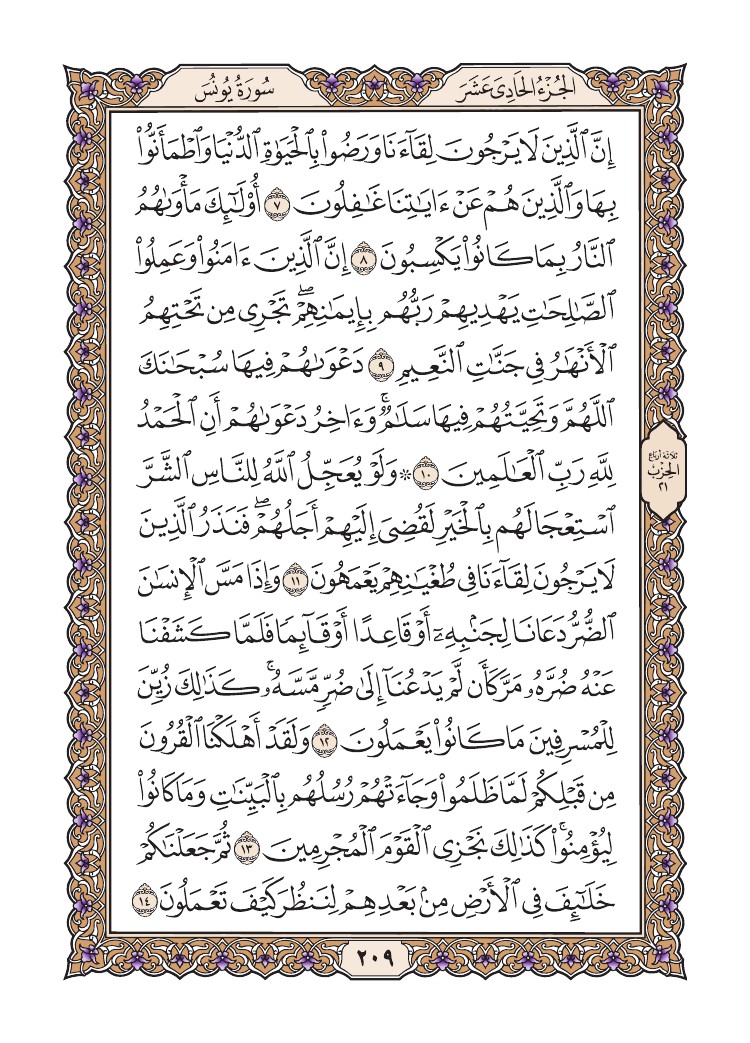 سُورَةُ يُونُسَ
الجُزْءُ الحَادِىَ عَشَرَ
إِنَّ ٱلَّذِينَ لَا يَرْجُونَ لِقَآءَنَا وَرَضُوا۟ بِٱلْحَيَوٰةِ ٱلدُّنْيَا وَٱطْمَأَنُّوا۟
بِهَا وَٱلَّذِينَ هُمْ عَنْ ءَايَـٰتِنَا غَـٰفِلُونَ ٧ أُو۟لَـٰٓئِكَ مَأْوَىٰهُمُ
ٱلنَّارُ بِمَا كَانُوا۟ يَكْسِبُونَ ٨ إِنَّ ٱلَّذِينَ ءَامَنُوا۟ وَعَمِلُوا۟
ٱلصَّـٰلِحَـٰتِ يَهْدِيهِمْ رَبُّهُم بِإِيمَـٰنِهِمْ ۖ تَجْرِى مِن تَحْتِهِمُ
ٱلْأَنْهَـٰرُ فِى جَنَّـٰتِ ٱلنَّعِيمِ ٩ دَعْوَىٰهُمْ فِيهَا سُبْحَـٰنَكَ
ٱللَّهُمَّ وَتَحِيَّتُهُمْ فِيهَا سَلَـٰمٌ ۚ وَءَاخِرُ دَعْوَىٰهُمْ أَنِ ٱلْحَمْدُ
لِلَّهِ رَبِّ ٱلْعَـٰلَمِينَ ١٠ ۞ وَلَوْ يُعَجِّلُ ٱللَّهُ لِلنَّاسِ ٱلشَّرَّ
ٱسْتِعْجَالَهُم بِٱلْخَيْرِ لَقُضِىَ إِلَيْهِمْ أَجَلُهُمْ ۖ فَنَذَرُ ٱلَّذِينَ
لَا يَرْجُونَ لِقَآءَنَا فِى طُغْيَـٰنِهِمْ يَعْمَهُونَ ١١ وَإِذَا مَسَّ ٱلْإِنسَـٰنَ
ٱلضُّرُّ دَعَانَا لِجَنۢبِهِۦٓ أَوْ قَاعِدًا أَوْ قَآئِمًا فَلَمَّا كَشَفْنَا
عَنْهُ ضُرَّهُۥ مَرَّ كَأَن لَّمْ يَدْعُنَآ إِلَىٰ ضُرٍّ مَّسَّهُۥ ۚ كَذَٰلِكَ زُيِّنَ
لِلْمُسْرِفِينَ مَا كَانُوا۟ يَعْمَلُونَ ١٢ وَلَقَدْ أَهْلَكْنَا ٱلْقُرُونَ
مِن قَبْلِكُمْ لَمَّا ظَلَمُوا۟ وَجَآءَتْهُمْ رُسُلُهُم بِٱلْبَيِّنَـٰتِ وَمَا كَانُوا۟
لِيُؤْمِنُوا۟ ۚ كَذَٰلِكَ نَجْزِى ٱلْقَوْمَ ٱلْمُجْرِمِينَ ١٣ ثُمَّ جَعَلْنَـٰكُمْ
خَلَـٰٓئِفَ فِى ٱلْأَرْضِ مِنۢ بَعْدِهِمْ لِنَنظُرَ كَيْفَ تَعْمَلُونَ ١٤
ثلاثة أرباع
الحزب
٢١
٢٠٩